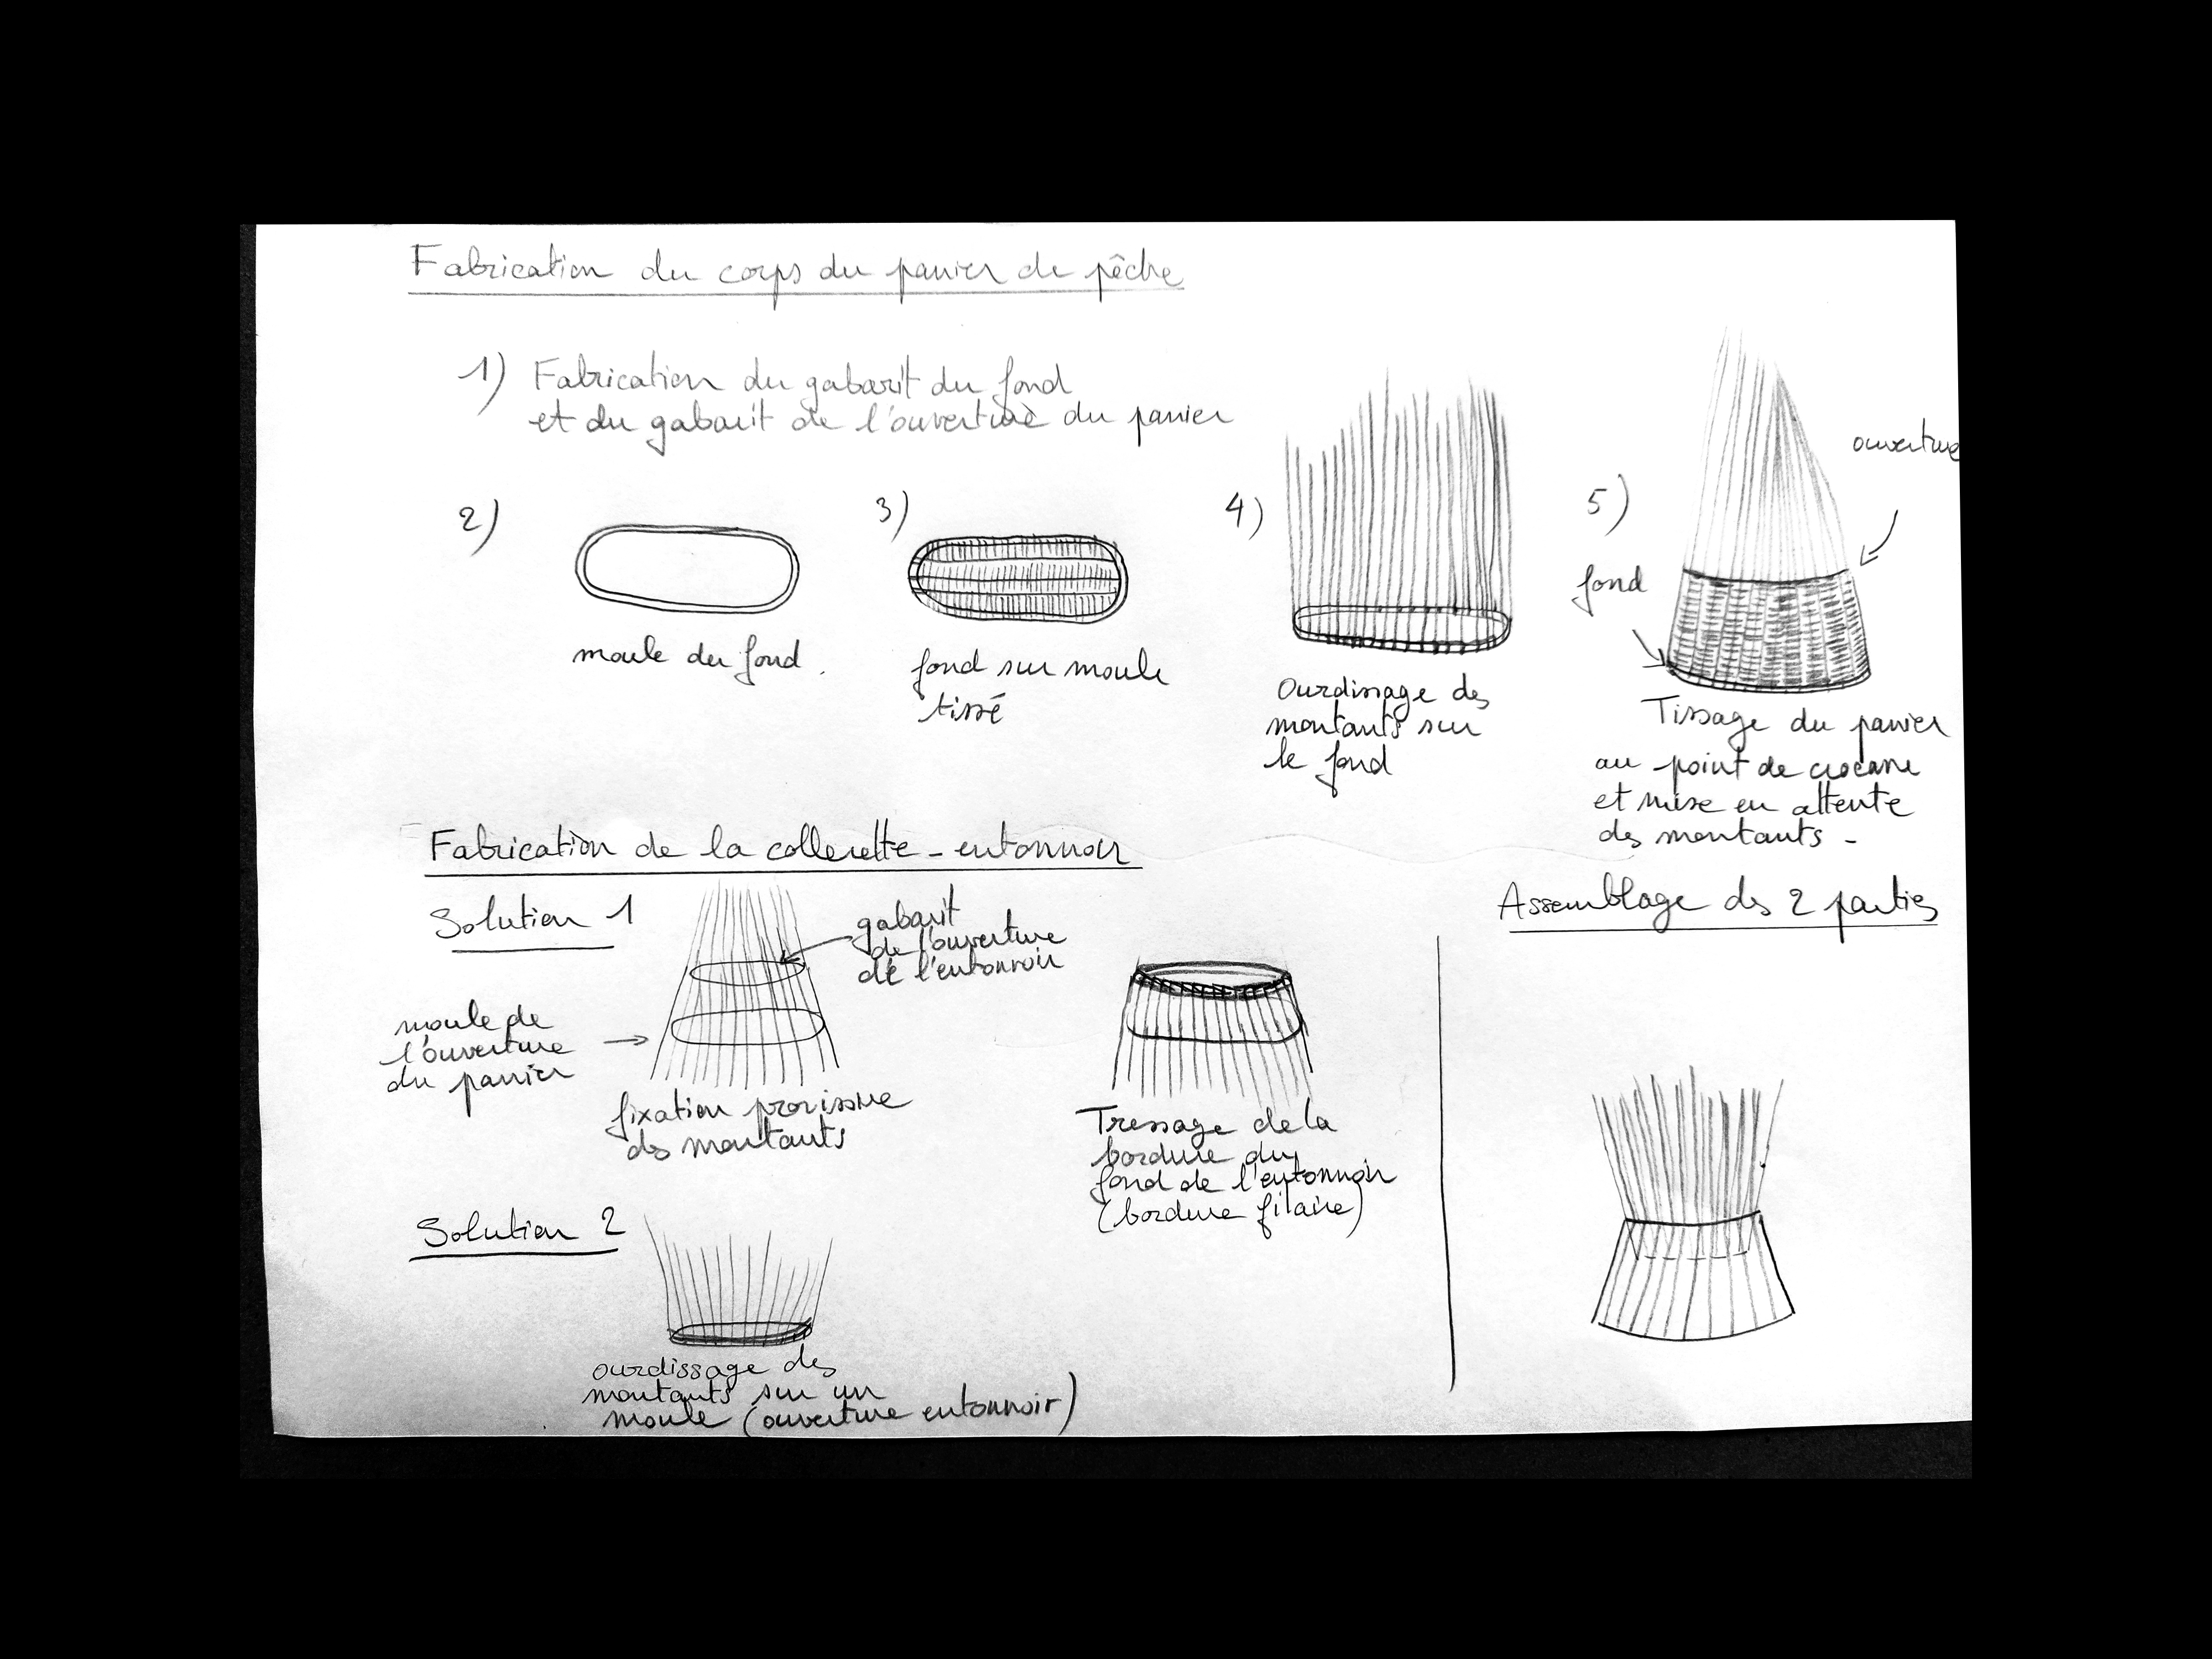 Fabrication du corps du panier de pêche
1) Fabrication du gabarit du fond
et du gabarit de l'ouverture du panier
2)
moule du fond.
3)
fond sur moule
tissé
4)
Ourdissage des
montants sur
le fond
5)
ouverture
fond
Tissage du panier
au point de
et mise en attente
des montants -
Fabrication de la collerette - entonnoir
Solution 1
gabarit
de l'ouverture
de l'entonnoir
moule de
l'ouverture
du panier
fixation provisoire
des montants
Tressage de la
bordure du
fond de l'entonnoir
(bordure filaire)
Solution 2
ourdissage des
montants sur un
moule (ouverture entonnoir)
Assemblage des 2 parties